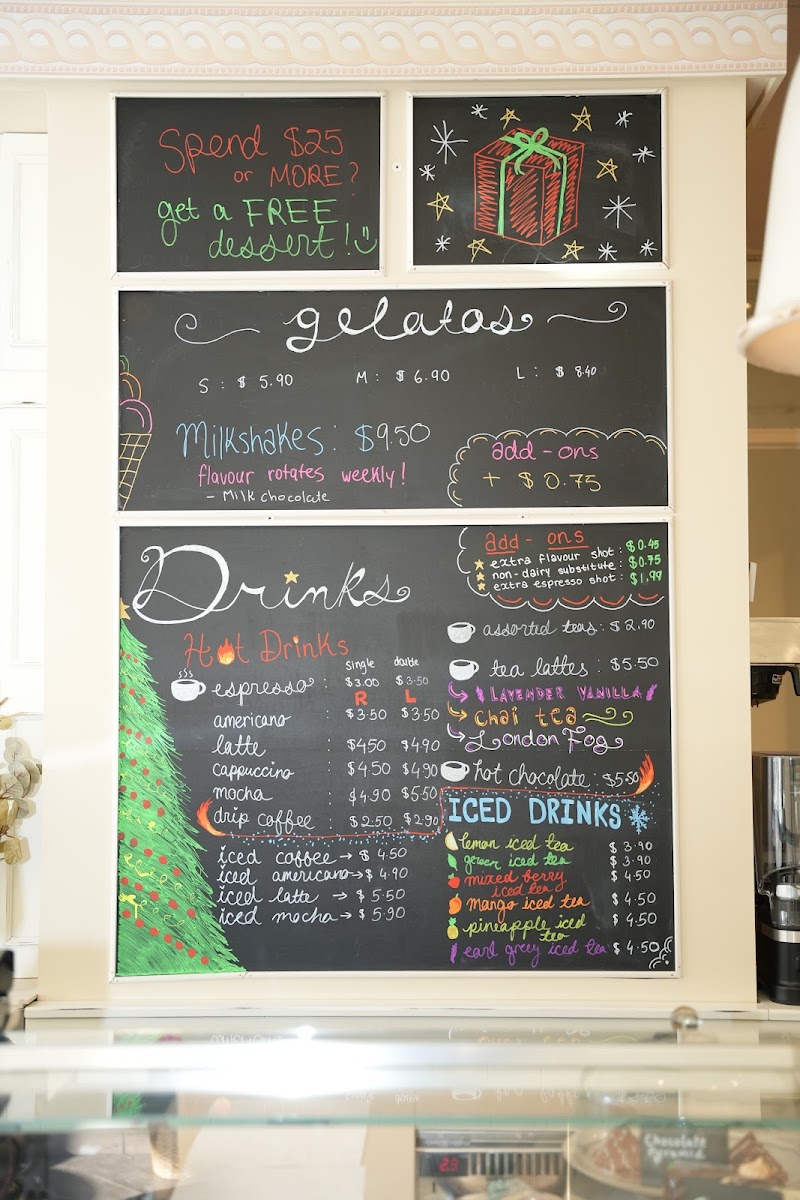 Spend $25
or MORE?
get a FREE
dessert! :)
gelatos
S : $ 5.90 M : $ 6.90 L : $ 8.40
Milkshakes: $9.50
flavour rotates weekly!
- Milk chocolate
add-ons
+ $0.75
Drinks
add-ons
extra flavour shot: $0.45
non-dairy substitute: $0.75
extra espresso shot: $1.99
Hot Drinks
single double
espresso : $3.00 $3.50
R L
americano : $3.50 $3.50
latte : $4.50 $4.90
cappuccino : $4.50 $4.90
mocha : $4.90 $5.50
drip coffee : $2.50 $2.90
iced coffee → $ 4.50
iced americano → $ 4.90
iced latte → $ 5.50
iced mocha → $ 5.90
assorted teas: $2.90
tea lattes: $5.50
LAVENDER VANILLA
chai tea
London Fog
hot chocolate: $5.50
ICED DRINKS
lemon iced tea $ 3.90
green iced tea $ 3.90
mixed berry $ 4.50
iced tea
mango iced tea $ 4.50
pineapple iced $ 4.50
tea
earl grey iced tea $ 4.50
Chocolate
Pyramid